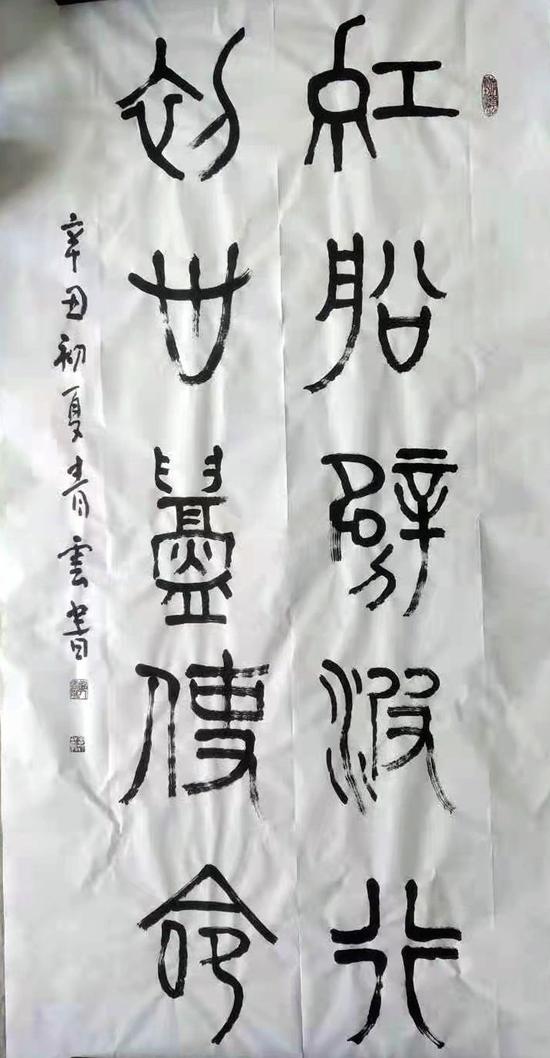 紅船劈波行
初心鑄使命
辛丑初夏青雲書